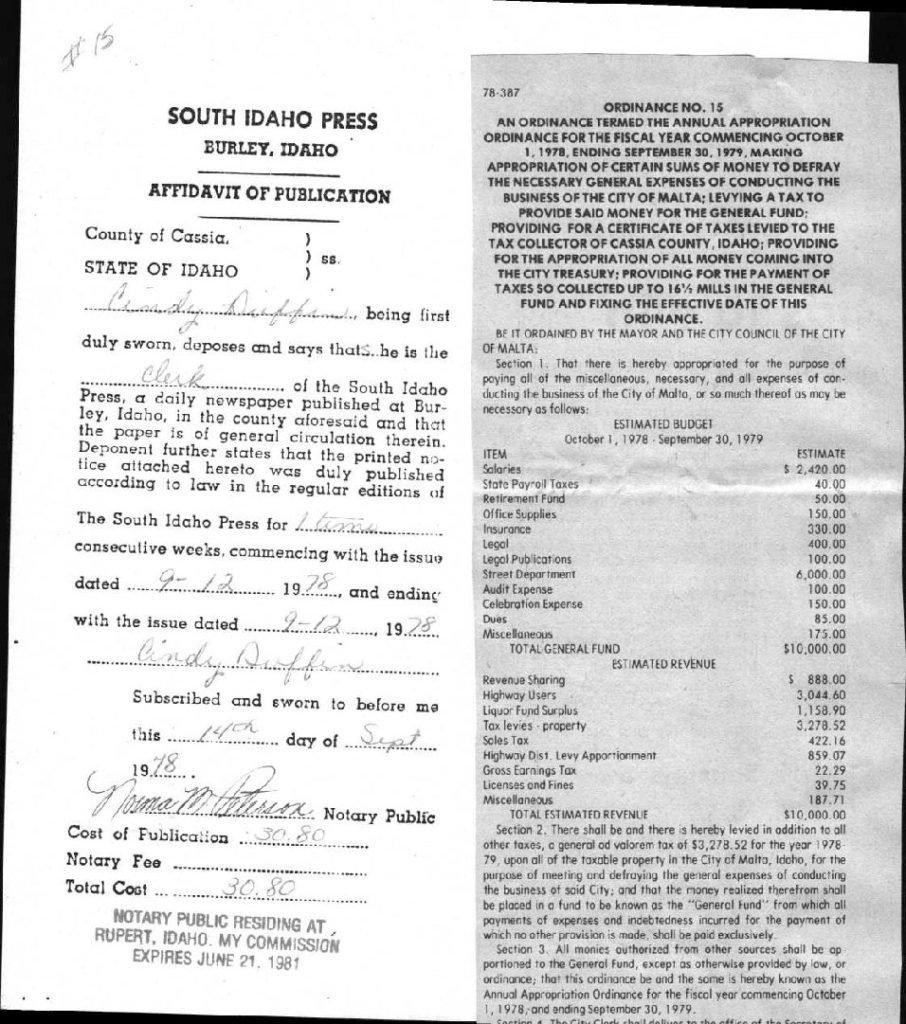 # 15
SOUTH IDAHO PRESS
BURLEY, IDAHO
AFFIDAVIT OF PUBLICATION
County of Cassia, )
) ss.
STATE OF IDAHO )
Cindy Duffin, being first
duly sworn, deposes and says thatS..he is the
Clerk of the South Idaho
Press, a daily newspaper published at Bur-
ley, Idaho, in the county aforesaid and that
the paper is of general circulation therein.
Deponent further states that the printed no-
tice attached hereto was duly published
according to law in the regular editions of
The South Idaho Press for 1 time
consecutive weeks, commencing with the issue
dated 9-12 1978, and ending
with the issue dated 9-12, 1978
Cindy Duffin
Subscribed and sworn to before me
this 14th day of Sept
1978.
Norma M. Peterson. Notary Public
Cost of Publication 30.80
Notary Fee
Total Cost 30.80
NOTARY PUBLIC RESIDING AT
RUPERT, IDAHO. MY COMMISSION
EXPIRES JUNE 21, 1981
78-387
ORDINANCE NO. 15
AN ORDINANCE TERMED THE ANNUAL APPROPRIATION
ORDINANCE FOR THE FISCAL YEAR COMMENCING OCTOBER
1, 1978, ENDING SEPTEMBER 30, 1979, MAKING
APPROPRIATION OF CERTAIN SUMS OF MONEY TO DEFRAY
THE NECESSARY GENERAL EXPENSES OF CONDUCTING THE
BUSINESS OF THE CITY OF MALTA; LEVYING A TAX TO
PROVIDE SAID MONEY FOR THE GENERAL FUND;
PROVIDING FOR A CERTIFICATE OF TAXES LEVIED TO THE
TAX COLLECTOR OF CASSIA COUNTY, IDAHO; PROVIDING
FOR THE APPROPRIATION OF ALL MONEY COMING INTO
THE CITY TREASURY; PROVIDING FOR THE PAYMENT OF
TAXES SO COLLECTED UP TO 16½ MILLS IN THE GENERAL
FUND AND FIXING THE EFFECTIVE DATE OF THIS
ORDINANCE.
BE IT ORDAINED BY THE MAYOR AND THE CITY COUNCIL OF THE CITY
OF MALTA:
Section 1. That there is hereby appropriated for the purpose of
paying all of the miscellaneous, necessary, and all expenses of con-
ducting the business of the City of Malta, or so much thereof as may be
necessary as follows:
ESTIMATED BUDGET
October 1, 1978 - September 30, 1979
ITEM ESTIMATE
Salaries $ 2,420.00
State Payroll Taxes 40.00
Retirement Fund 50.00
Office Supplies 150.00
Insurance 330.00
Legal 400.00
Legal Publications 100.00
Street Department 6,000.00
Audit Expense 100.00
Celebration Expense 150.00
Dues 85.00
Miscellaneous 175.00
TOTAL GENERAL FUND $10,000.00
ESTIMATED REVENUE
Revenue Sharing $ 888.00
Highway Users 3,044.60
Liquor Fund Surplus 1,158.90
Tax levies - property 3,278.52
Sales Tax 422.16
Highway Dist. Levy Apportionment 859.07
Gross Earnings Tax 22.29
Licenses and Fines 39.75
Miscellaneous 187.71
TOTAL ESTIMATED REVENUE $10,000.00
Section 2. There shall be and there is hereby levied in addition to all
other taxes, a general ad valorem tax of $3,278.52 for the year 1978-
79, upon all of the taxable property in the City of Malta, Idaho, for the
purpose of meeting and defraying the general expenses of conducting
the business of said City; and that the money realized therefrom shall
be placed in a fund to be known as the "General Fund" from which all
payments of expenses and indebtedness incurred for the payment of
which no other provision is made, shall be paid exclusively.
Section 3. All monies authorized from other sources shall be ap-
portioned to the General Fund, except as otherwise provided by law, or
ordinance; that this ordinance be and the same is hereby known as the
Annual Appropriation Ordinance for the fiscal year commencing October
1, 1978, and ending September 30, 1979.
Section 4. The City Clerk shall deliver to the office of the Secretary of